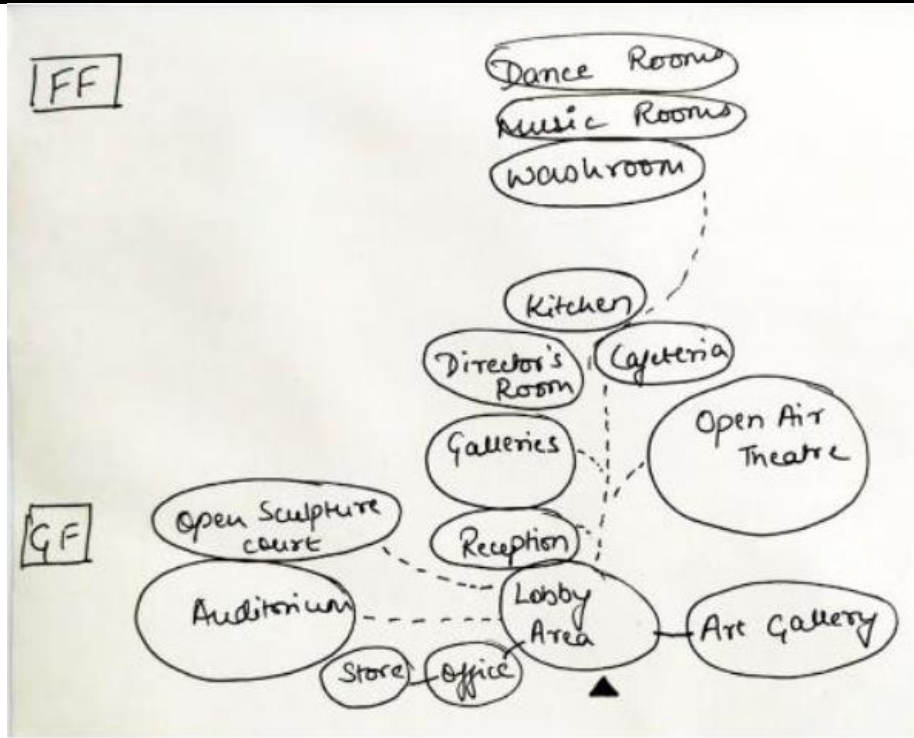 FF
Dance Rooms
Music Rooms
Washroom
Kitchen
Director's
Room
Cafeteria
Open Air
Theatre
Galleries
GF
Open Sculpture
court
Reception
Auditorium
Lobby
Area
Art Gallery
Store
Office